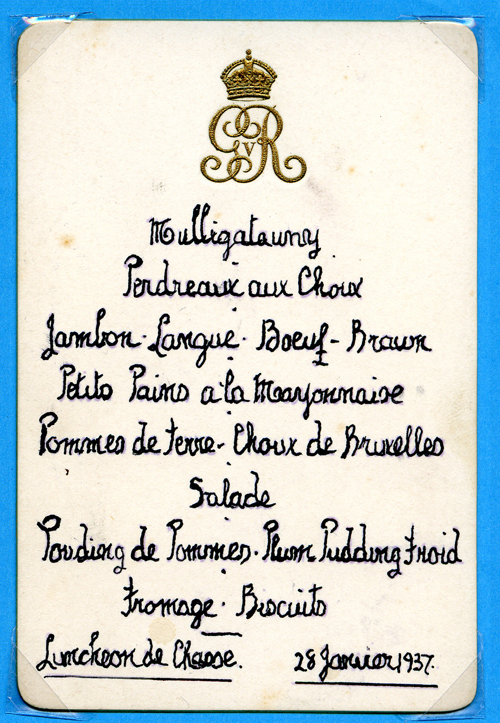 GRV
Mulligatawny
Perdreaux aux Choux
Jambon - Langue - Boeuf - Brawn
Petits Pains à la Mayonnaise
Pommes de terre - Choux de Bruxelles
Salade
Pouding de Pommes - Plum Pudding Froid
Fromage - Biscuits
Luncheon de Chasse. 28 Janvier 1937.